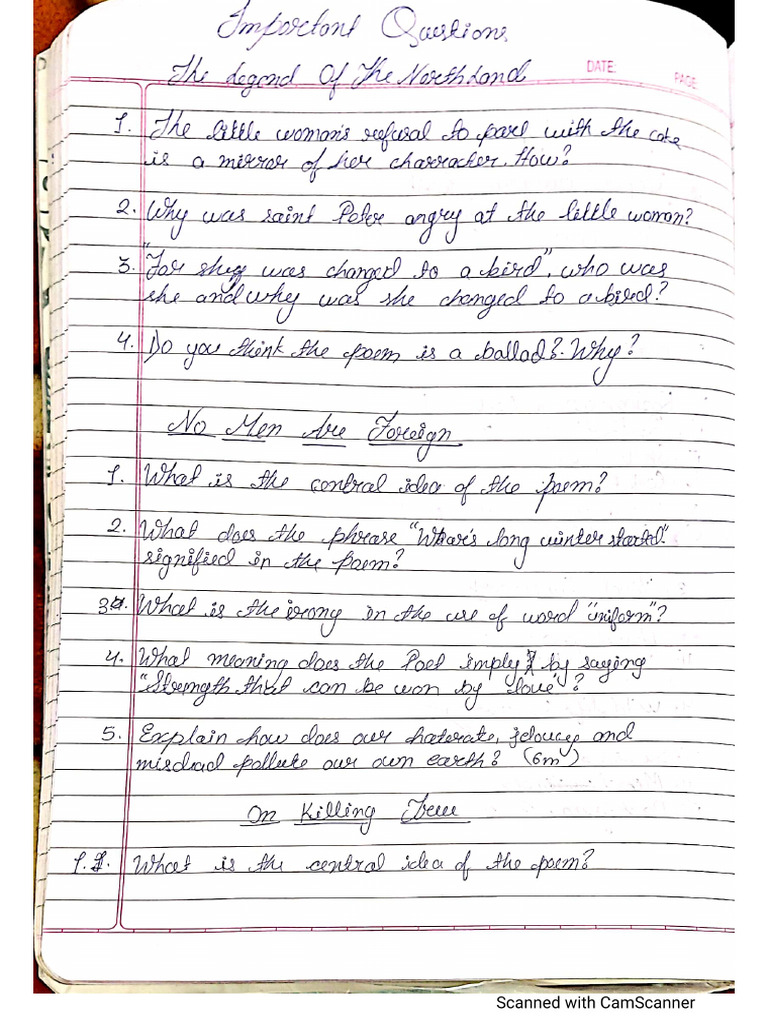 Important Questions
The Legend Of The North Land
DATE:
PAGE:
1. The little woman's refusal to part with the cake
is a mirror of her character. How?
2. Why was saint Peter angry at the little woman?
3. "For she was changed to a bird", who was
she and why was she changed to a bird?
4. Do you think the poem is a ballad? Why?
No Men Are Foreign
1. What is the central idea of the poem?
2. What does the phrase "War's long winter started"
signified in the poem?
3. What is the irony in the use of word "uniform"?
4. What meaning does the Poet imply by saying
"Strength that can be won by love"?
5. Explain how does our haterate, jeloucy and
pollute our own earth? (6m)
On Killing Tree
1. What is the central idea of the poem?
Scanned with CamScanner